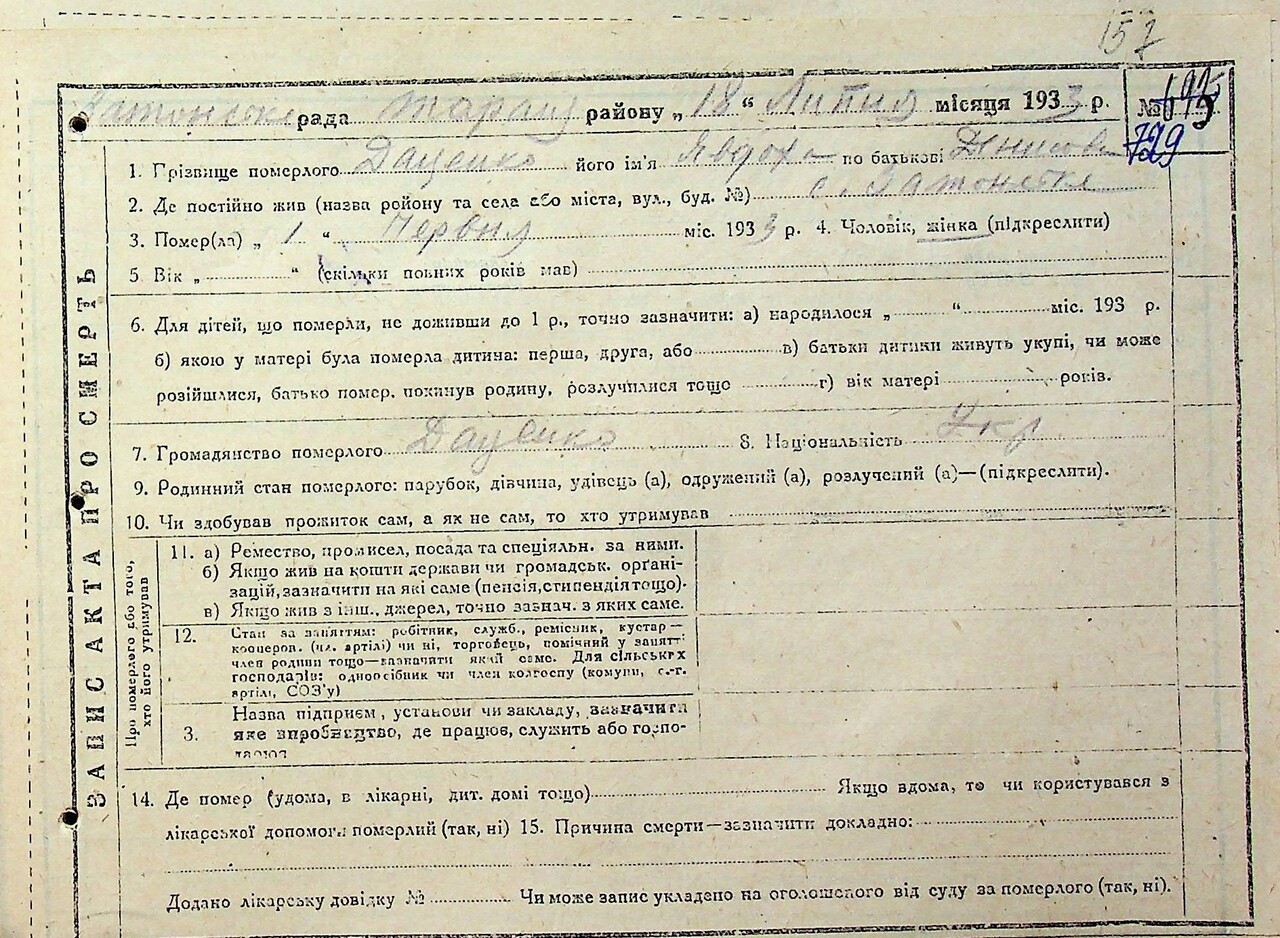 157
рада Таращ району „18“ Липня місяця 1933 р. №
729
1. Грізвище померлого Даценко його ім'я Явдоха по батькові Денисов
2. Де постійно жив (назва району та села або міста, вул., буд. №) с.
3. Помер(ла) „1“ Червня міс. 1933 р. 4. Чоловік, жінка (підкреслити)
5. Вік „ “ (скільки повних років мав)
6. Для дітей, що померли, не доживши до 1 р., точно зазначити: а) народилося „ “ міс. 193 р.
б) якою у матері була померла дитина: перша, друга, або в) батьки дитини живуть укупі, чи може
розійшлися, батько помер, покинув родину, розлучилися тощо г) вік матері років.
7. Громадянство померлого Даценко 8. Національність Укр
9. Родинний стан померлого: парубок, дівчина, удівець (а), одружений (а), розлучений (а)—(підкреслити).
10. Чи здобував прожиток сам, а як не сам, то хто утримував
Про померлого або того,
хто його утримував
11. а) Ремество, промисел, посада та спеціяльн. за ними.
б) Якщо жив на кошти держави чи громадськ. орґані-
зацій, зазначити на які саме (пенсія, стипендія тощо).
в) Якщо жив з інш., джерел, точно зазнач. з яких саме.
12. Стан за заняттям: робітник, служб., ремісник, кустар—
кооперов. (чл. артілі) чи ні, торговець, помічний у занятт:
член родини тощо—зазначити який саме. Для сільських
господарів: одноосібник чи член колгоспу (комуни, с.-г.
артілі, СОЗ'у)
3. Назва підприєм, установи чи закладу, зазначити
яке виробництво, де працює, служить або госпо-
14. Де помер (удома, в лікарні, дит. домі тощо) Якщо вдома, то чи користувався з
лікарської допомоги померлий (так, ні) 15. Причина смерти—зазначити докладно:
Додано лікарську довідку № Чи може запис укладено на оголошеного від суду за померлого (так, ні).
ЗАПИС АКТА ПРО СМЕРТЬ